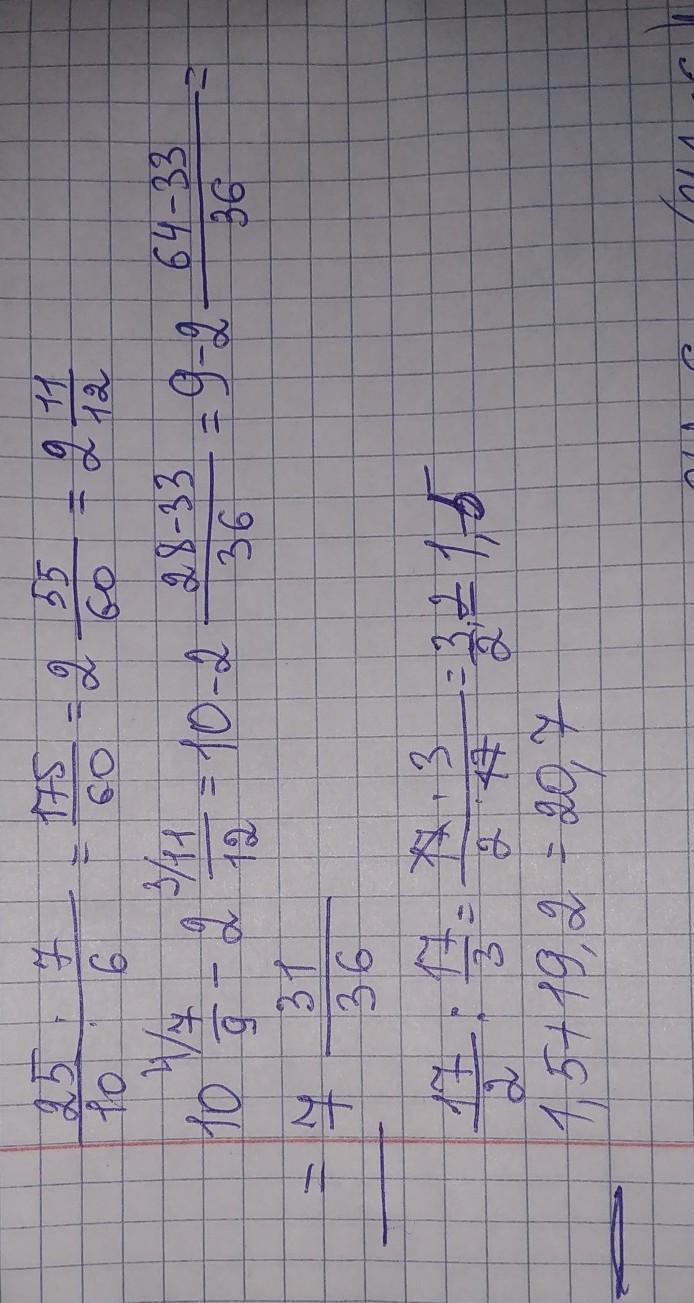 25 · 7 / 10 · 6 = 175/60 = 2 55/60 = 2 11/12
10 4/7/9 - 2 3/11/12 = 10-2 28-33/36 = 9-2 64-33/36 =
= 7 31/36
17/2 : 17/3 = 17 · 3 / 2 · 17 = 3/2 1,5
1,5+19,2 = 20,7